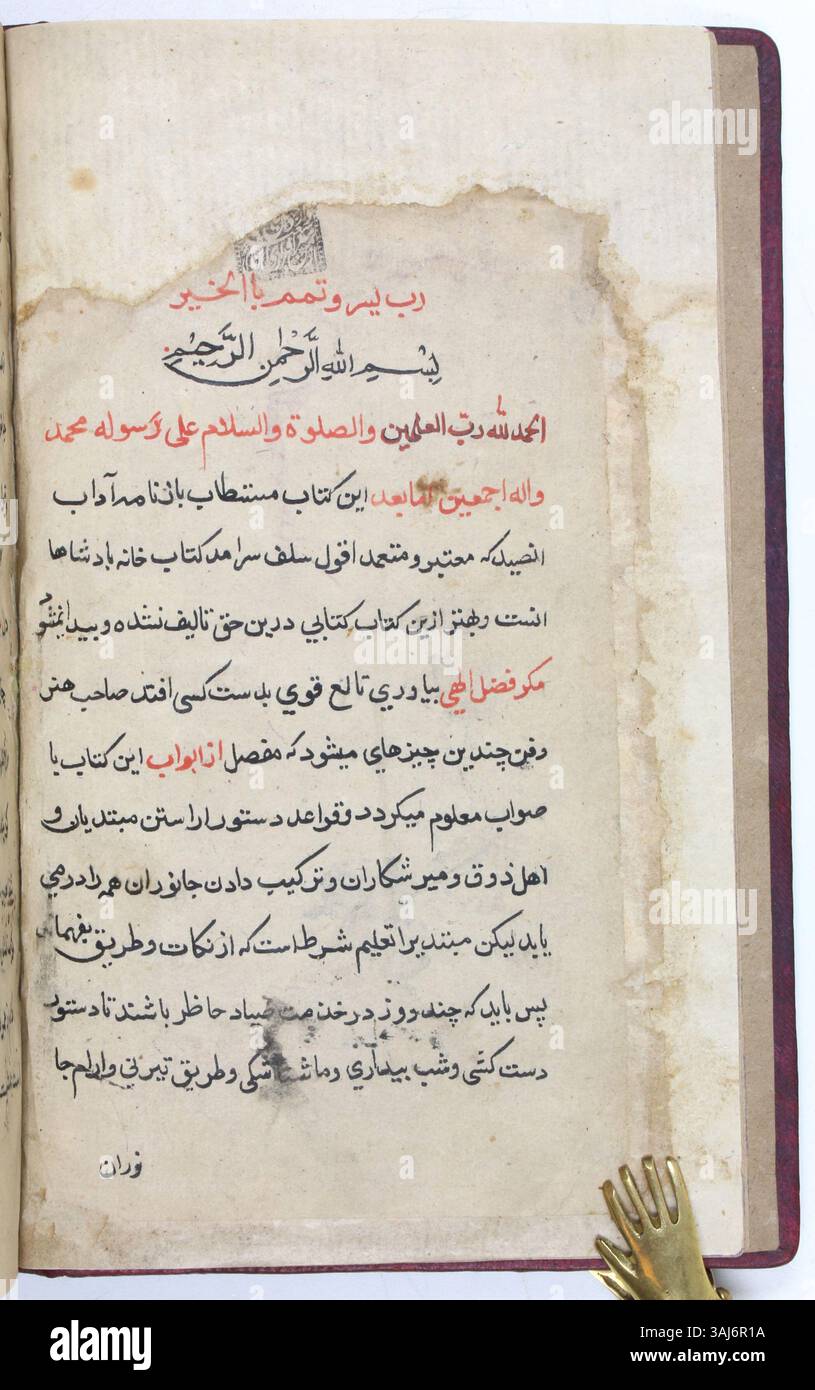 رب یسر وتمم باالخیر
بِسْمِ اللهِ الرَّحْمٰنِ الرَّحِیْمِ
الحمد لله رب العلمین والصلوة والسلام علی رسوله محمد
واله اجمعین اما بعد این کتاب مستطاب باز نامه آداب
الصید که معتبر و متعمد اقول سلف سرامد کتاب خانه بادشاها
انست وبهتر ازین کتاب کتابي درین حق تالیف نشده و بیدا نمیشود
مکر فضل الهي بیاوري تالع قوي بدست کسی افتد صاحب هنر
وفن چندین چیزهاي میشود که مفصل از ابواب این کتاب با
صواب معلوم میکردد وقواعد دستور اراستن مبتدیان و
اهل ذوق و میر شکاران وترکیب دادن جانوران همه را درمي
یابد لیکن مبتدیرا تعلیم شرط است که از نکات وطریق بفهما
پس باید که چند روز در خدمت صیاد حاظر باشند تا دستور
دست کشی وشب بیداري وطریق وارام جا
نوران
alamy
Image ID: 3AJ6R1A
www.alamy.com